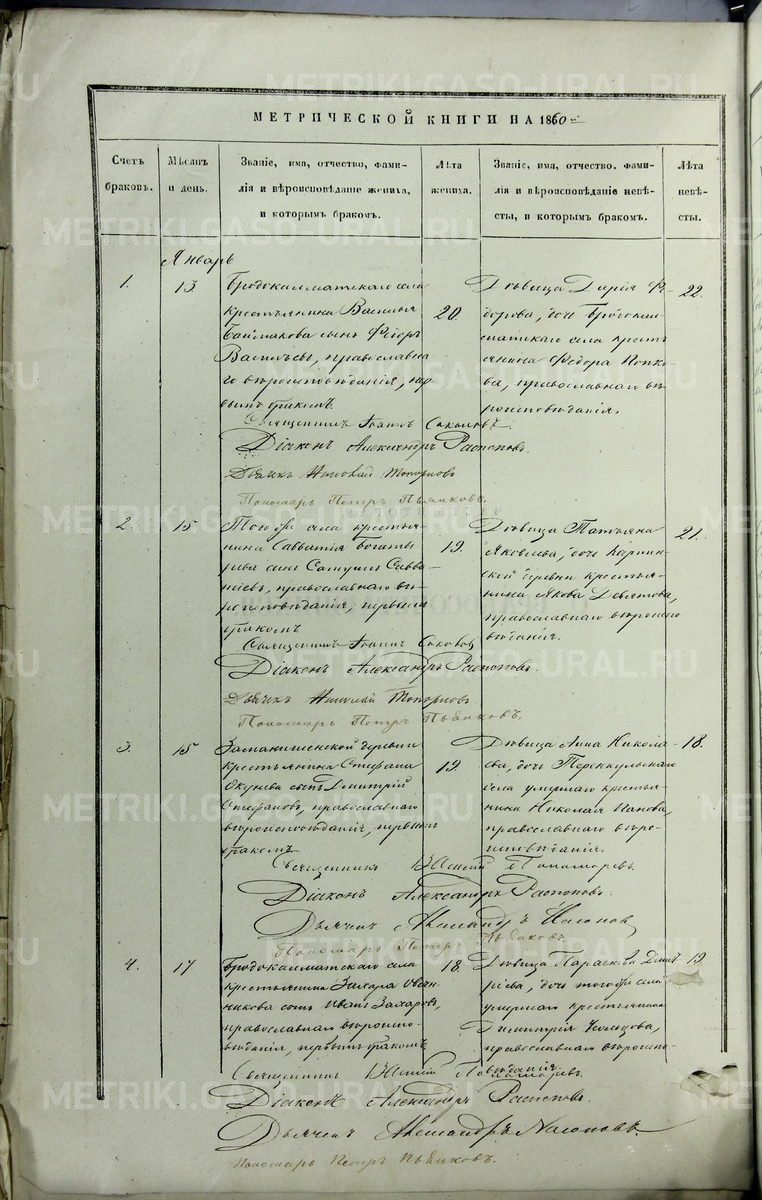 МЕТРИЧЕСКОЙ КНИГИ НА 1860
Счетъ браковъ.
Мѣсяцъ и день.
Званіе, имя, отчество, фами-
лія и вѣроисповѣданіе жениха,
и которымъ бракомъ.
Лѣта жениха.
Званіе, имя, отчество. фами-
лія и вѣроисповѣданіе невѣ-
сты, и которымъ бракомъ.
Лѣта невѣ-
сты.
Январь
1.
13
Бродокалматскаго села
крестьянина Василья
Баймакова сынъ Ѳедоръ
Васильевъ, православна
го вѣроисповѣданія, пер
вымъ бракомъ.
20.
Дѣвица Дарія Ѳе-
дорова, дочь Бродокал-
матскаго села кресть
янина Ѳедора Попко-
ва, православнаго вѣ-
роисповѣданія.
22.
Священникъ Іоаннъ Соколовъ.
Діаконъ Александръ Распоповъ.
Дьячекъ Николай Топорковъ
Пономарь Петръ Пьянковъ.
2.
15
Того же села крестья-
нина Савватія Богаты
рева сынъ Самуилъ Савва-
тіевъ, православнаго вѣ-
роисповѣданія, первымъ
бракомъ
19.
Дѣвица Татьяна
Яковлева, дочь
ской деревни крестья-
нина Якова Девятова,
православнаго вѣроиспо
вѣданія.
21.
Священникъ Іоаннъ Соколовъ
Діаконъ Александръ Распоповъ.
Дьячекъ Николай Топорковъ
Пономарь Петръ Пьянковъ.
3.
15
деревни
крестьянина Стефана
Окунева сынъ Димитрій
Стефановъ, православнаго
вѣроисповѣданія, первымъ
бракомъ
19.
Дѣвица Анна Никола-
ева, дочь Теренкульскаго
села умершаго крестья-
нина Николая Панова,
православнаго вѣро-
исповѣданія.
18.
Священникъ Василій Пономаревъ.
Діаконъ Александръ Распоповъ.
Дьячекъ Александръ Насоновъ
Пономарь Петръ Пьянковъ.
4.
17
Бродокалматскаго села
крестьянина Захара Овчи-
никова сынъ Иванъ Захаровъ,
православнаго вѣроиспо-
вѣданія, первымъ бракомъ
18.
Дѣвица Параскева Дими
ріева, дочь того же села
умершаго крестьянина
Димитрія
православнаго вѣроиспо-
вѣданія
19.
Священникъ Василій Пономаревъ.
Діаконъ Александръ Распоповъ.
Дьячекъ Александръ Насоновъ.
Пономарь Петръ Пьянковъ.
METRIKI.GASO-URAL.RU